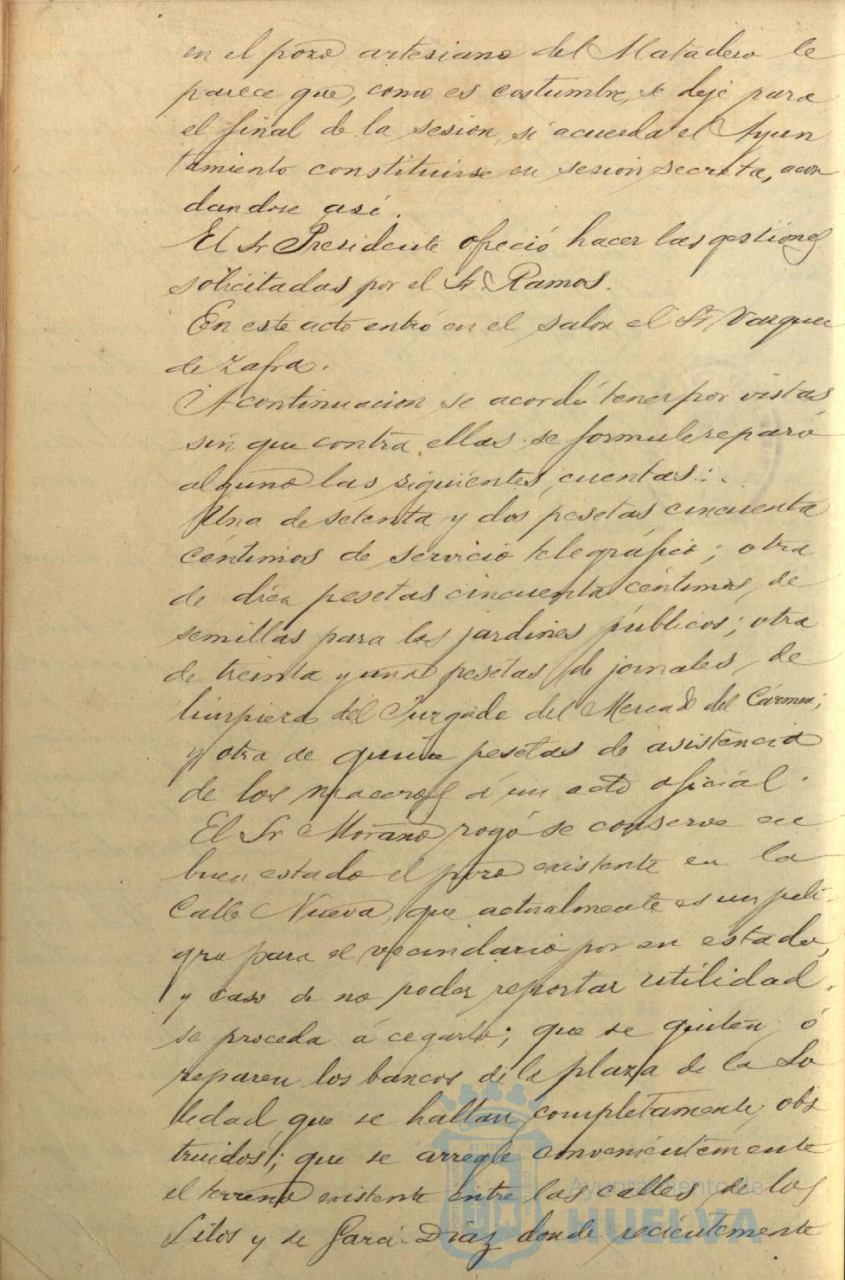 en el pozo artesiano del Matadero le
parece que, como es costumbre, se deje para
el final de la sesion, si acuerda el Ayun
tamiento constituirse en sesion secreta, acor
dandose asi.
El Sr Presidente ofreció hacer las gestiones
solicitadas por el Sr Ramos.
En este acto entró en el salon el Sr Vazquez
de Zafra.
A continuacion se acordó tener por vistas
sin que contra ellas se formule reparo
alguno las siguientes cuentas:
Una de setenta y dos pesetas cincuenta
céntimos de servicio telegráfico; otra
de diez pesetas cincuenta céntimos, de
semillas para los jardines públicos; otra
de treinta y una pesetas de jornales, de
limpieza del Juzgado del Mercado del Cármen;
y otra de quince pesetas de asistencia
de los maceros á un acto oficial.
El Sr Morano rogó se conserve en
buen estado el pozo existente en la
Calle Nueva, que actualmente es un peli
gro para el vecindario por su estado,
y caso de no poder reportar utilidad,
se proceda á cegarlo; que se quiten ó
reparen los bancos de la plaza de la So
ledad que se hallan completamente obs
truidos; que se arregle convenientemente
el terreno existente entre las calles de los
Silos y de Garci-Díaz donde recientemente
Ayuntamiento de
HUELVA